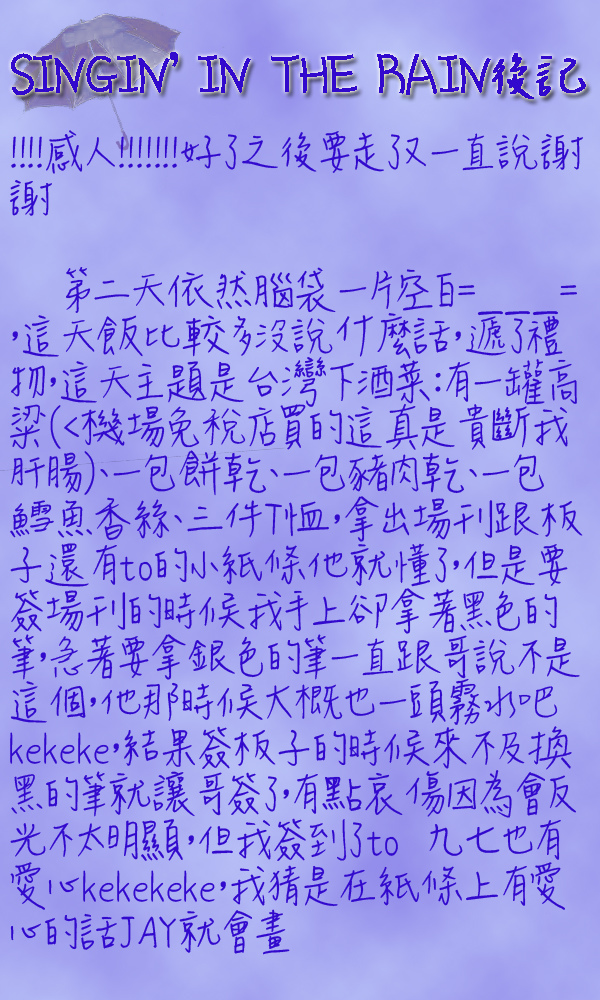 SINGIN' IN THE RAIN後記
!!!!感人!!!!!!!好了之後要走了又一直說謝
謝
第二天依然腦袋一片空白=_ _ _=
,這天飯比較多沒說什麼話,遞了禮
物,這天主題是台灣下酒菜:有一罐高
粱(<機場免稅店買的這真是貴斷我
肝腸)、一包餅乾、一包豬肉乾、一包
鱈魚香絲、三件T恤,拿出場刊跟板
子還有to的小紙條他就懂了,但是要
簽場刊的時候我手上卻拿著黑色的
筆,急著要拿銀色的筆一直跟哥說不是
這個,他那時候大概也一頭霧水吧
kekeke,結果簽板子的時候來不及換
黑的筆就讓哥簽了,有點哀傷因為會反
光不太明顯,但我簽到了to 九七也有
愛心kekekeke,我猜是在紙條上有愛
心的話JAY就會畫